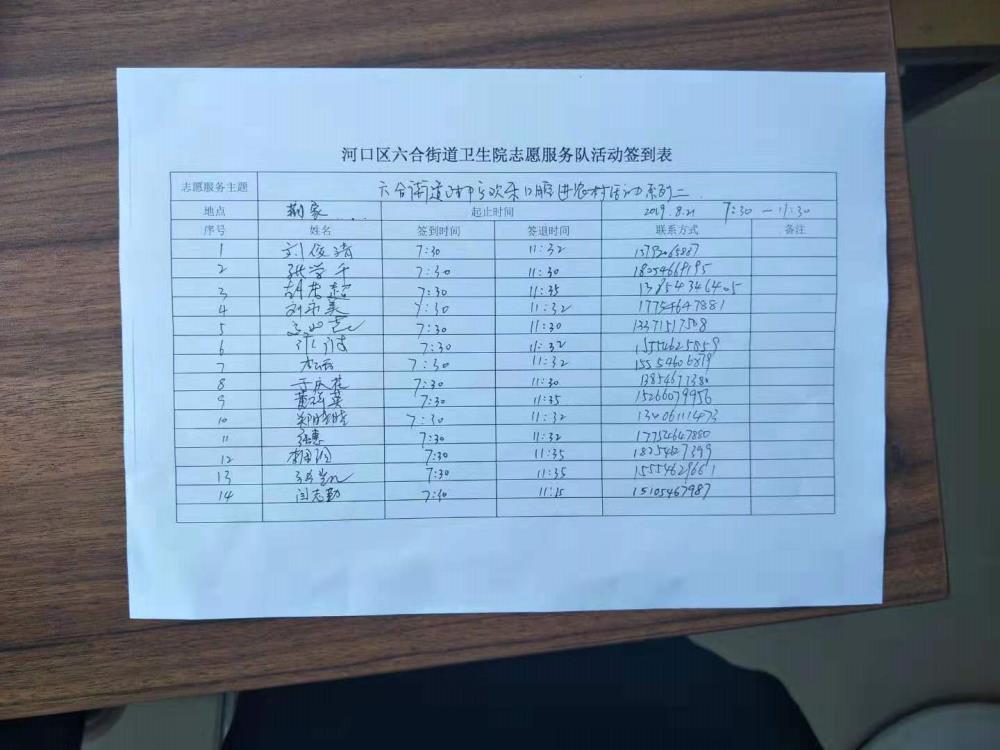 河口区六合街道卫生院志愿服务队活动签到表
志愿服务主题 六合街道 口腔进农村活动系列二
地点 荆家 起止时间 2019.8.21 7:30 — 11:30
序号 姓名 签到时间 签退时间 联系方式 备注
1 刘俊清 7:30 11:32
2 张学千 7:30 11:30 18054669195
3 7:30 11:35 13854346405
4 7:30 11:32 17754647881
5 7:30 11:30 13371517508
6 7:30 11:32 15554625859
7 7:30 11:32
8 7:30 11:30
9 7:30 11:35 15266079956
10 郑晓晓 7:30 11:32 13406111473
11 徐惠 7:30 11:32 17754647880
12 7:30 11:35 18254627399
13 7:30 11:35 15554629661
14 闫志勤 7:30 11:15 15105467987